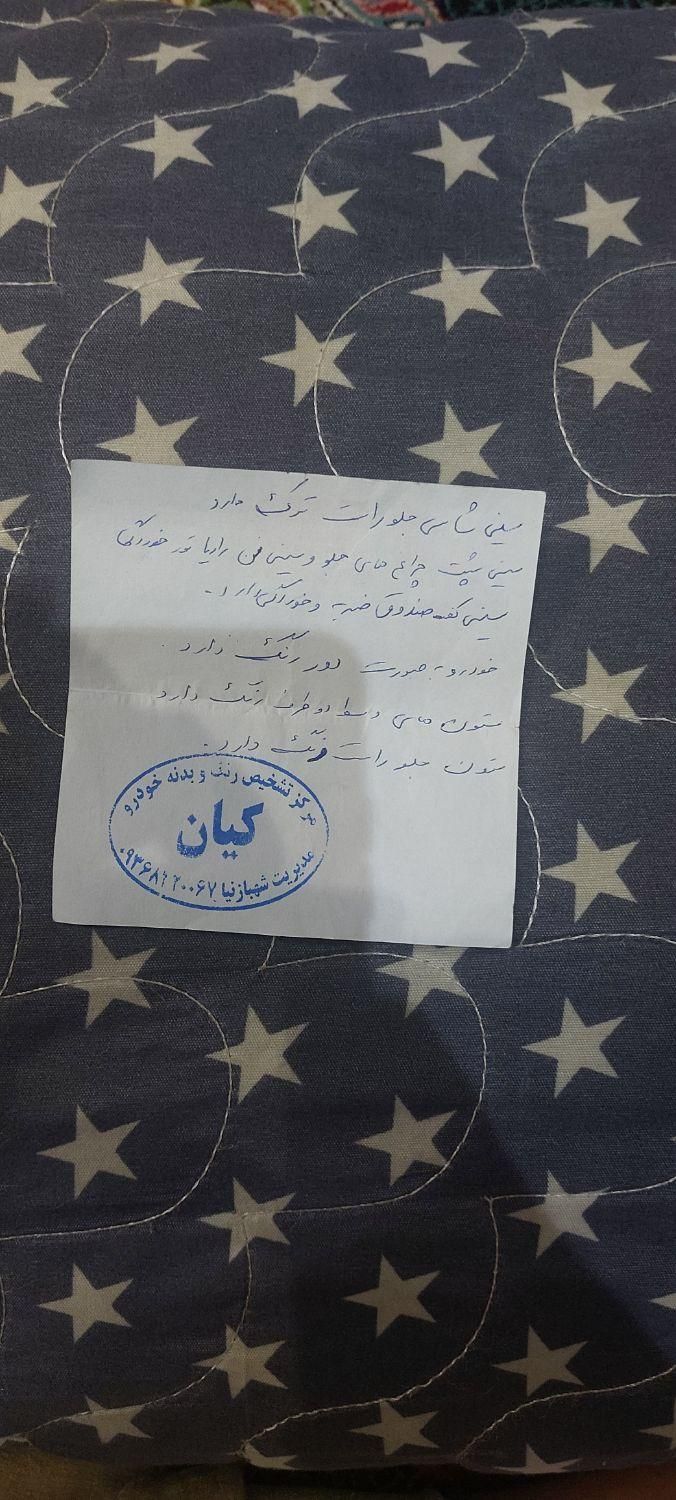 سینی شاسی جلو راست ترک دارد
سینی پشت چراغ های جلو و سینی فن رادیاتور خوردگی
سینی کف صندوق ضربه و خوردگی دارد.
خودرو به صورت دور رنگ دارد.
ستون های وسط دو طرف رنگ دارد
ستون جلو راست رنگ دارد.
مرکز تشخیص رنگ و بدنه خودرو
کیان
مدیریت شهبازنیا